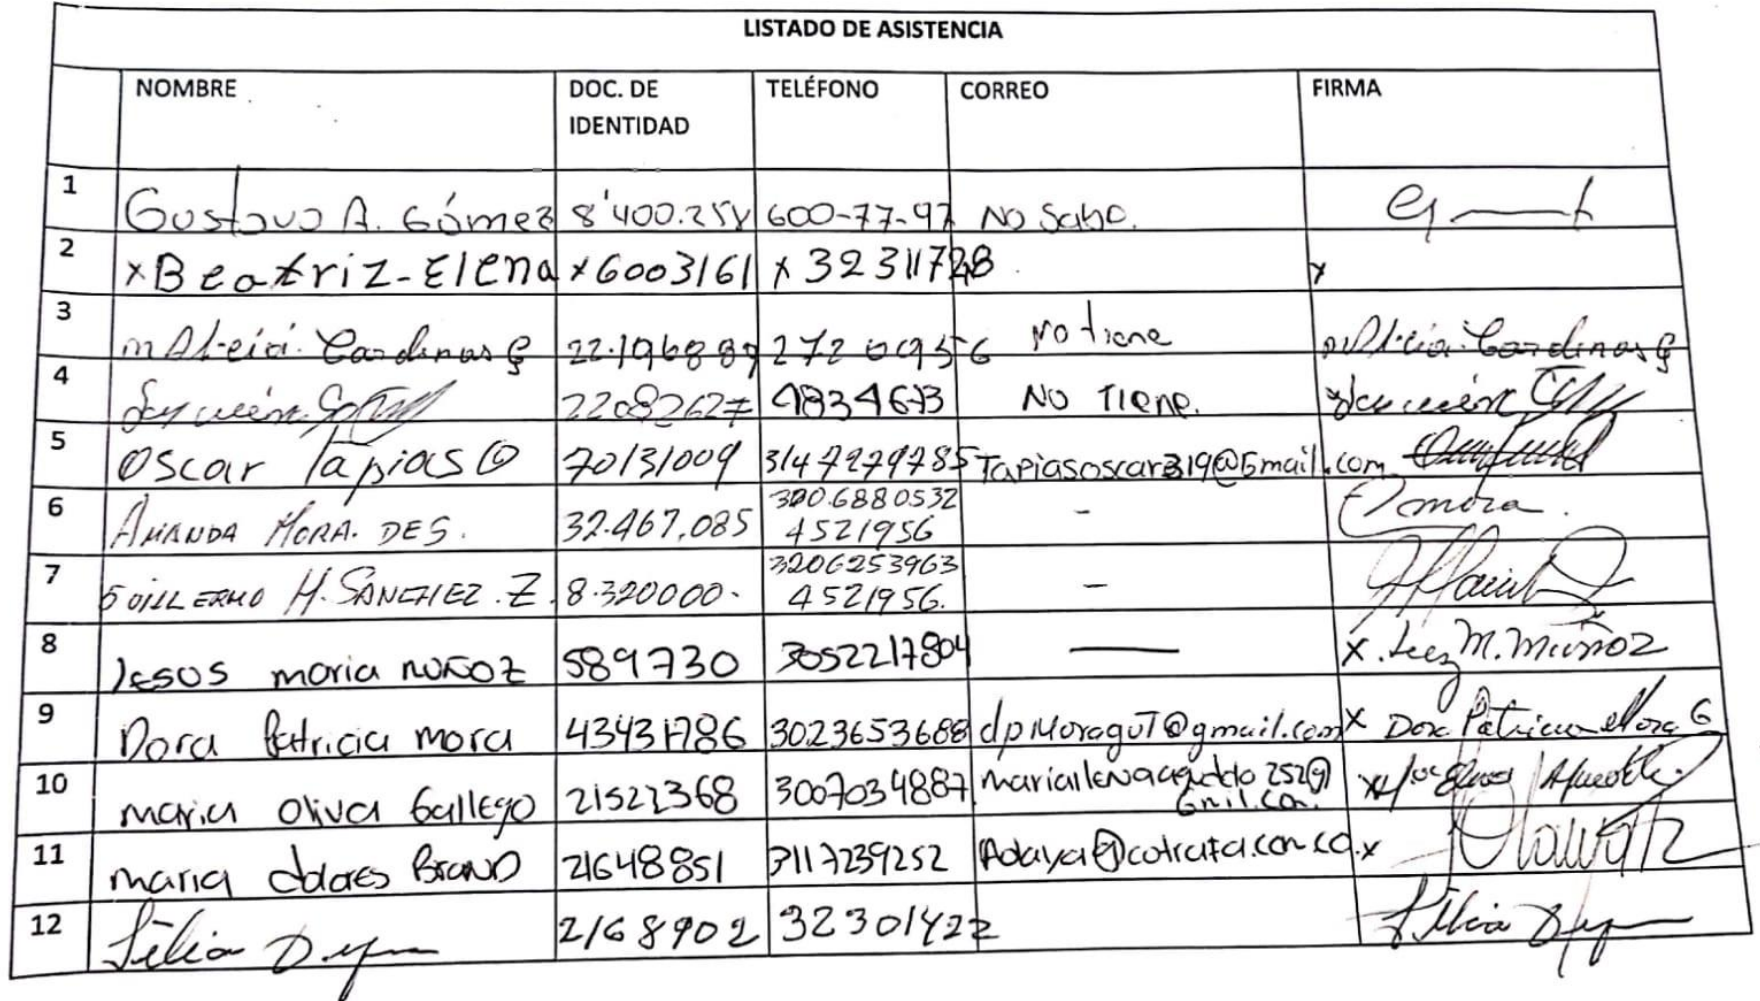 LISTADO DE ASISTENCIA
NOMBRE DOC. DE IDENTIDAD TELÉFONO CORREO FIRMA
1 Gustavo A. Gómez 8'400.258 600-77-97 No Sabe.
2 x Beatriz-Elena x 6003161 x 32311728 x
3 Cardenas G 22.196889 2720956 No tiene Cardenas G
4 22082627 4834673 No Tiene.
5 Oscar Tapias O 70131009 3147279785 Tapiasoscar319@Gmail.com
6 AMANDA MORA. DES. 32.467.085 320.6880532 4521956 - Amora.
7 GUILLERMO H. SANCHEZ. Z. 8.320000. 3206253963 4521956. -
8 Jesus maria nuñoz 589730 3052217804 — x. M. Muñoz
9 Dora Patricia mora 43431786 3023653688 dpMoragut@gmail.com x Dora Patricia Mora G
10 maria Oliva Gallego 21522368 3007034887 x
Gmil.Com.
11 maria dolores Brand 21648851 3117239252 Adaya@cotrafa.com.co. x
12 2168902 32301422